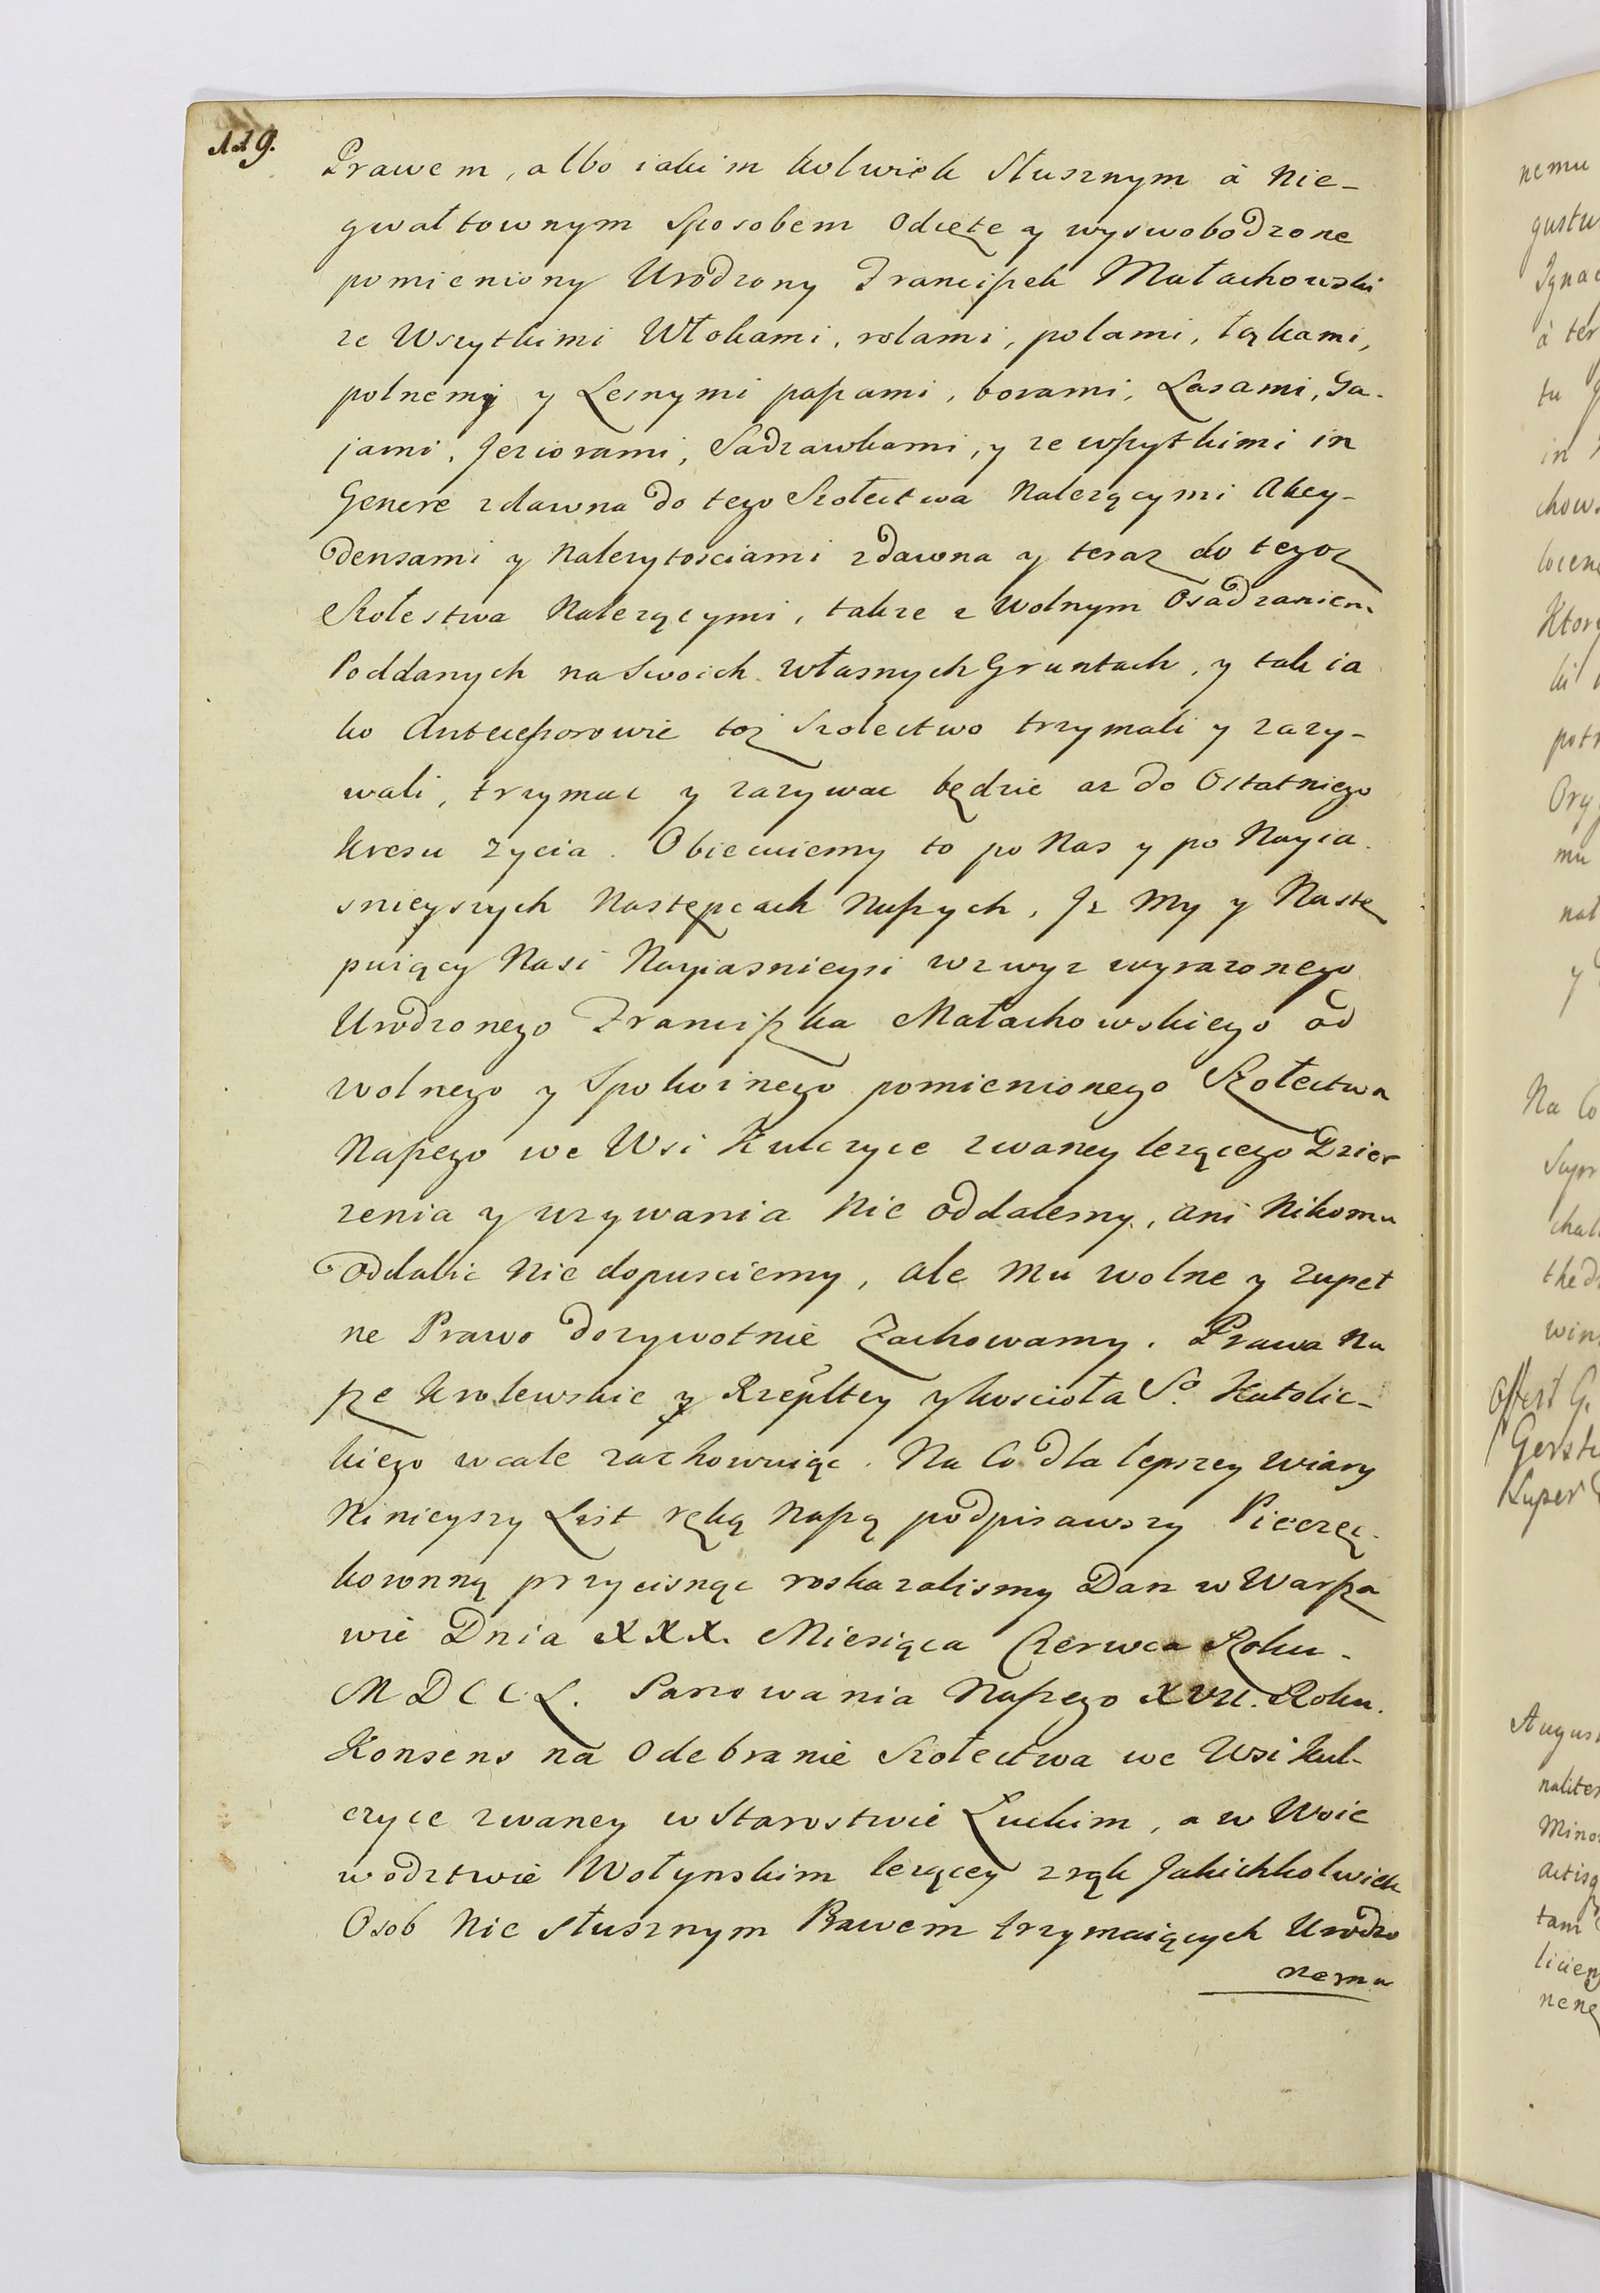 Ad 9.
Prawem, albo iakimkolwiek Słusznym à Nie-
gwałtownym Sposobem Odięte y wyswobodzone
pomieniony Urodzony Franciszek Małachowski
ze Wszytkimi Włokami, rolami, polami, łąkami,
polnemi y Lesnymi paszami, borami, Lasami, Ga-
jami, Jeziorami, Sadzawkami, y ze wszytkimi in
Genere zdawna do tego Szołectwa Należącymi Akcy-
densami y Należytosciami zdawna y teraz do tegoż
Szołestwa Należącymi, takze z Wolnym Osadzaniem
Poddanych na Swoich własnych Gruntach, y tak ia
ko Antecessorowie toż Szolectwo trzymali y zazy-
wali, trzymac y zazywac będzie az do Ostatniego
Kresu zycia. Obiecuiemy to po Nas y po Nayia
snieyszych Następcach Naszych, Iz My y Nastę
puiący Nasi Nayiasnieysi wzwyz wyrazonego
Urodzonego Franciszka Małachowskiego od
wolnego y Spokoinego pomienionego Szołectwa
Naszego we Wsi Kulczyce zwaney lezącego Dzier
zenia y uzywania Nie oddalemy, ani Nikomu
Oddalic Nie dopusciemy, ale Mu wolne y zupeł
ne Prawo dozywotnie Zachowamy. Prawa Na
sze Krolewskie y Rzepltey y kosciola So. Katolic-
kiego wcale zachowuiąc. Na Co dla lepszey wiary
Ninieyszy List ręką Naszą podpisawszy Pieczęc
koronną przycisnąc roskazalismy Dan w Warsza
wie Dnia XXX. Miesiąca Czerwca Roku
MDCCL. Panowania Naszego XVII. Roku.
Konsens na Odebranie Szołectwa we Wsi Kul-
czyce zwaney w Starostwie Łuckim, a w Woie
wodztwie Wołynskim lezącey z rąk Jakichkolwiek
Osob Nie Słusznym Prawem trzymaiących Urodzo
nemu
nemu
Ignac
à ter
tu
in
chow
Ktor
ki
potr
Ory
mu
nal
y
Na Co
Supr
chal
thed
win
Gerst
August
naliter
Mino
actisq
tam
licen